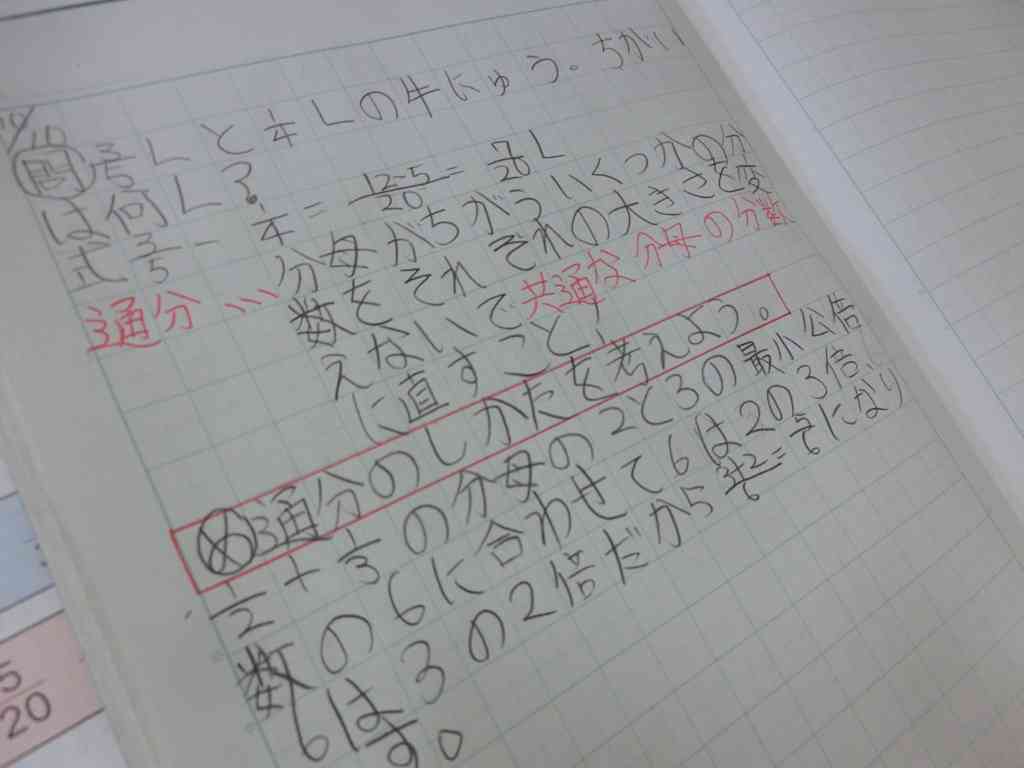 10/10
問 3/5Lと1/4Lの牛にゅう。ちがい
は何L?
式 3/5 - 1/4 = 12-5/20 = 7/20L
通分…分母がちがういくつかの分
数をそれぞれの大きさを変
えないで共通な分母の分数
に直すこと
め 通分のしかたを考えよう。
1/2 + 1/3の分母の2と3の最小公倍
数の6に合わせて6は2の3倍、
6は3の2倍だから 3+2/6 = 5/6になり
ます。
5/20